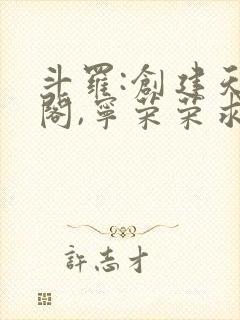 斗羅:創建天
閣,寧榮榮求
許志才